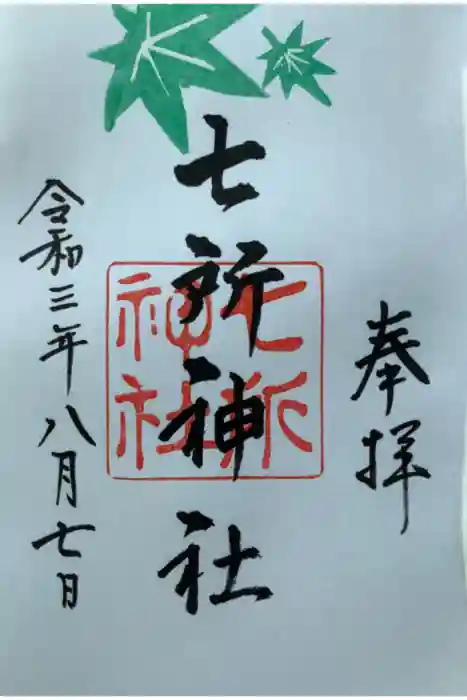 奉拝
七所神社
七所
神社
令和三年八月七日